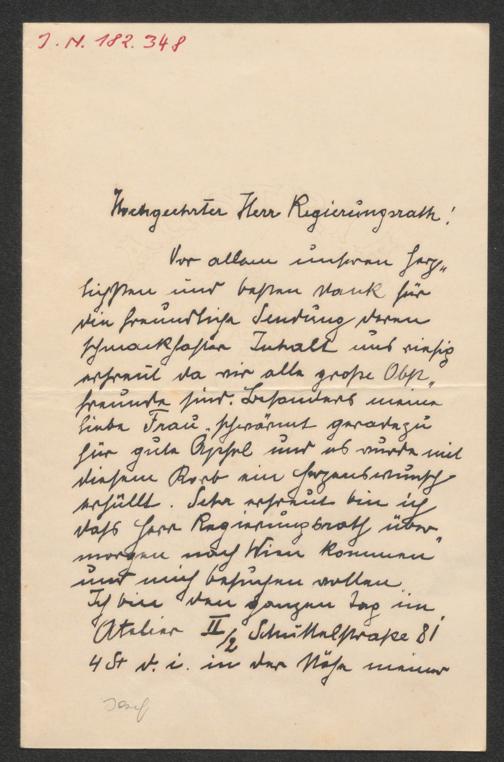 J. N. 182.348
Hochgeehrter Herr Regierungsrath!
Vor allem unseren herz„
lichsten und besten Dank für
die freundliche Sendung deren
schmackhafter Inhalt uns riesig
erfreut da wir alle große Obst„
freunde sind. Besonders meine
liebe Frau, schwärmt geradezu
für gute Apfel und es wurde mit
diesem Korb ein Herzenswunsch
erfüllt. Sehr erfreut bin ich
dass Herr Regierungsrath über„
morgen nach Wien kommen
und mich besuchen wollen
Ich bin den ganzen Tag im
Atelier II/2 Schüttelstraße 81
4 St d. i. in der Nähe meiner
Josef